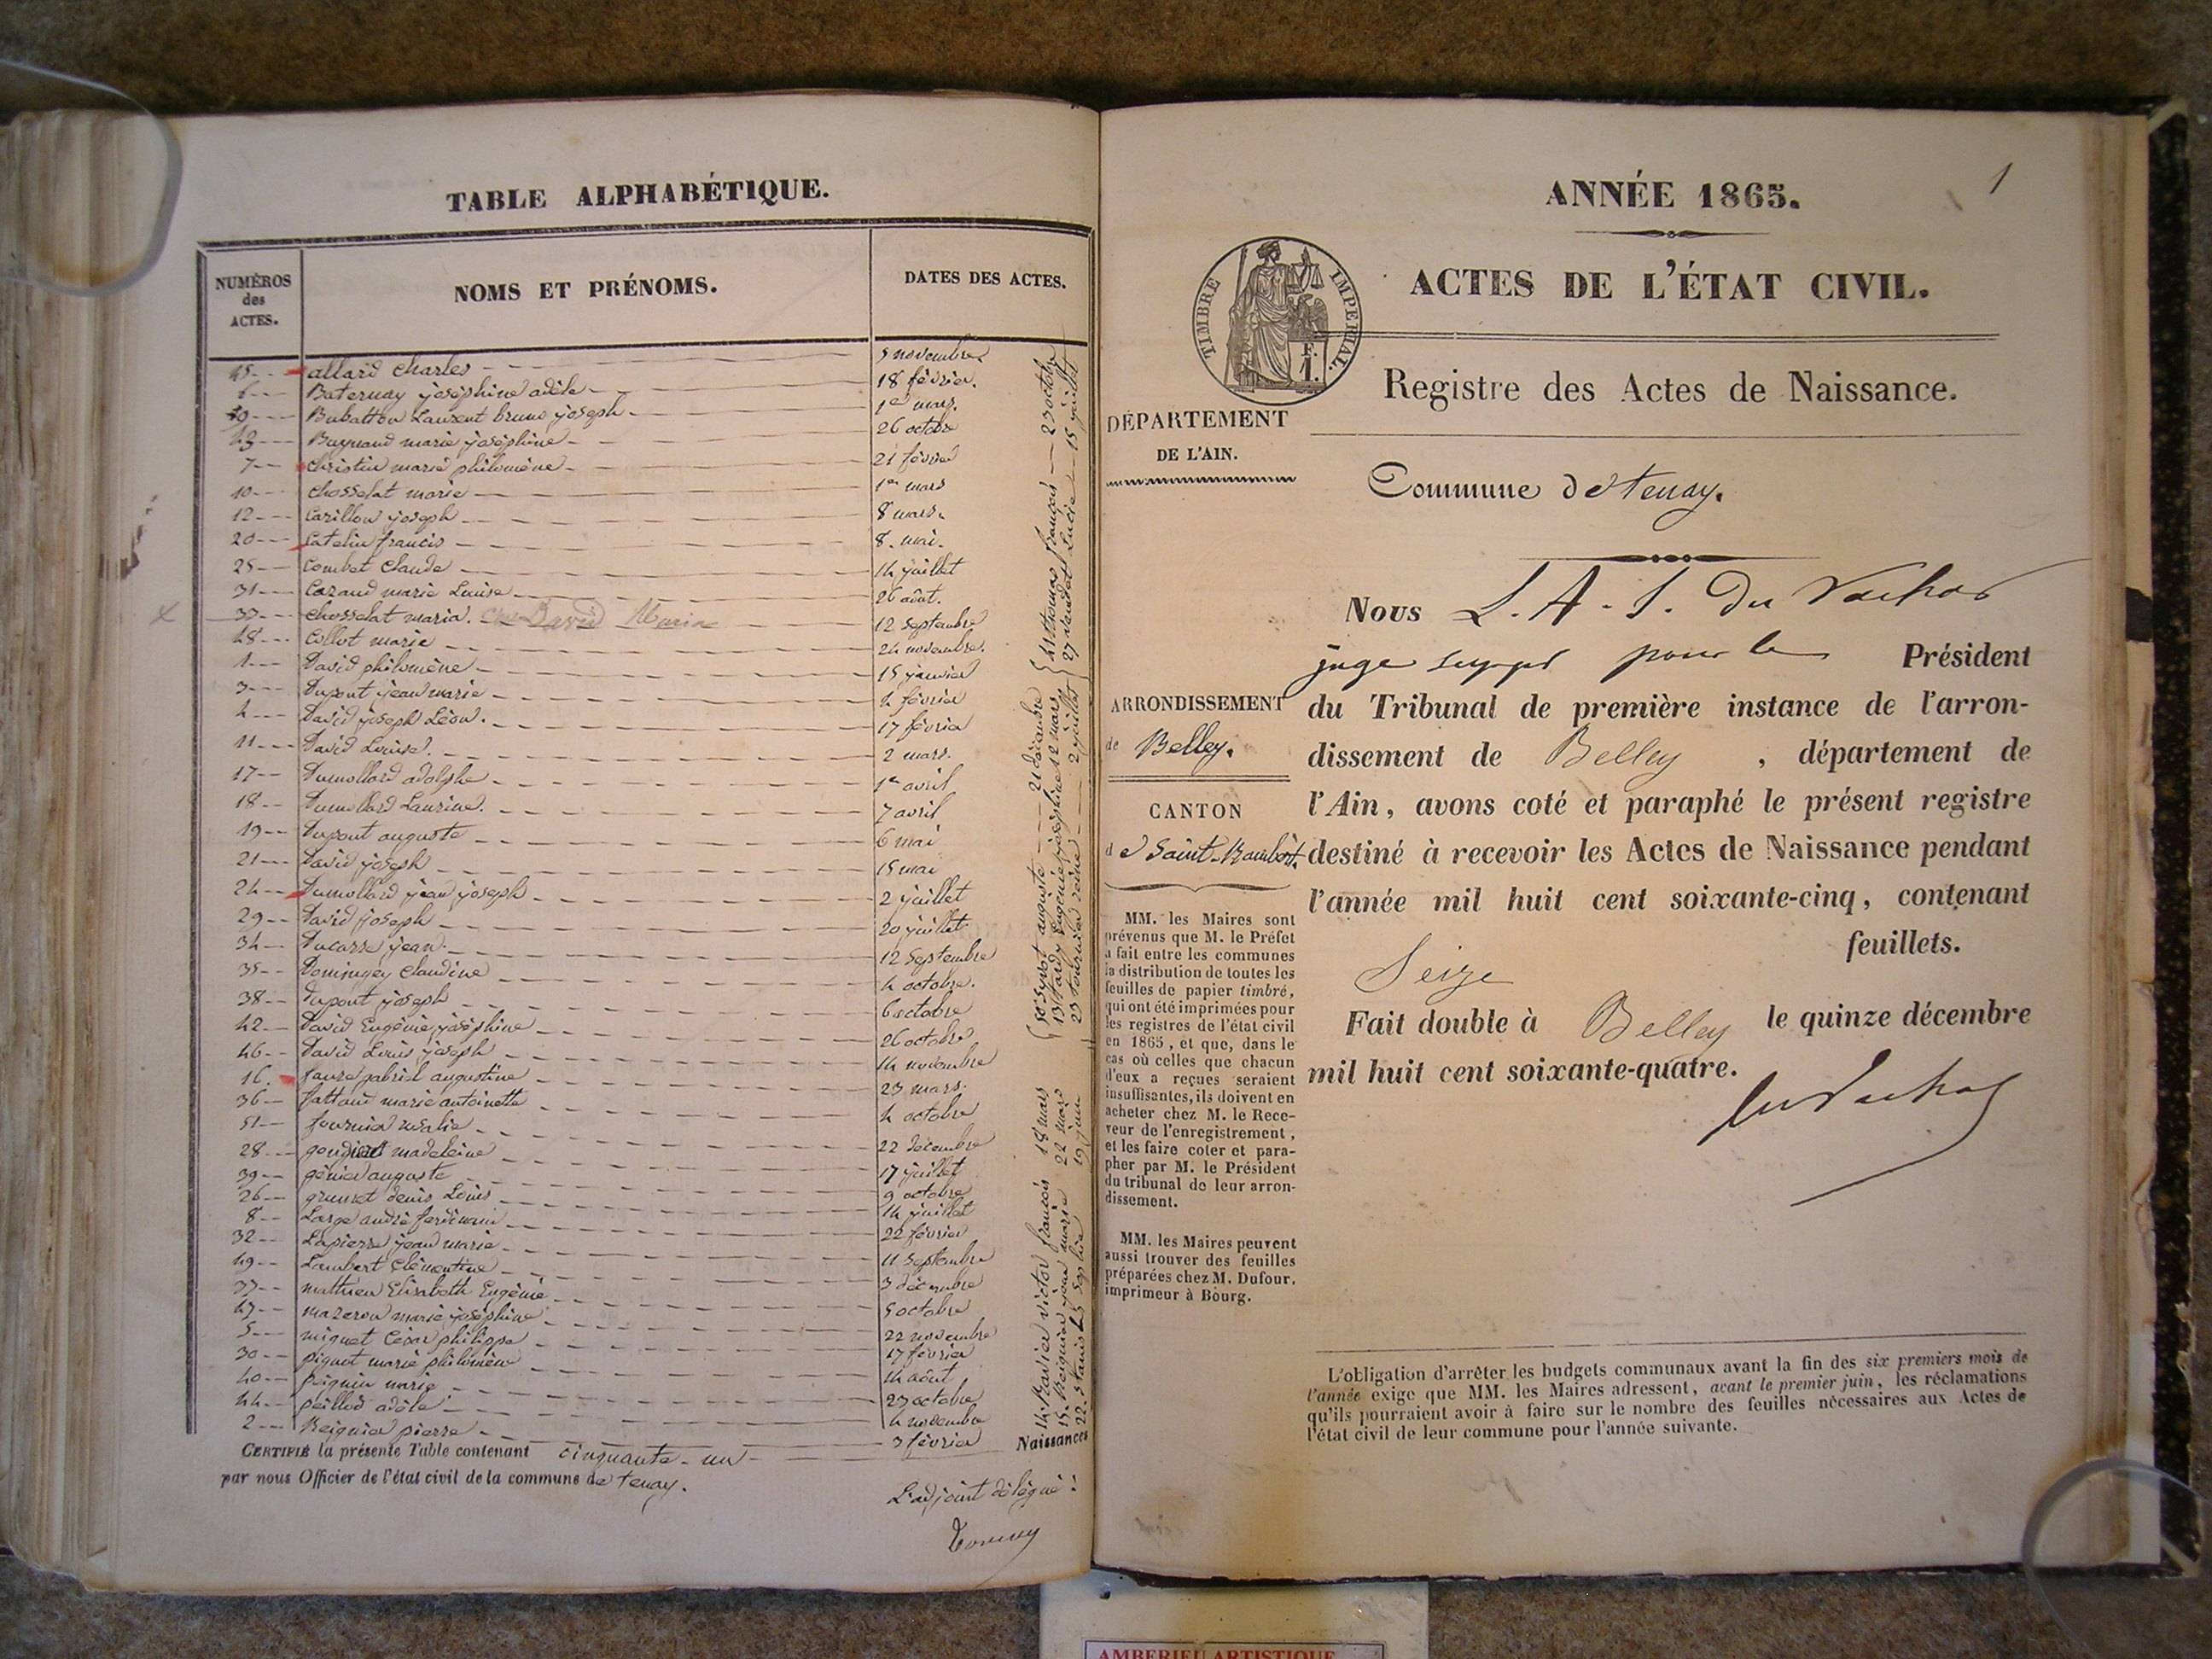 TABLE ALPHABÉTIQUE.
NUMÉROS
des
ACTES.
NOMS ET PRÉNOMS.
DATES DES ACTES.
45 allard charles 5 novembre
6 Baternay joséphine adèle 18 février.
9 Laurent bruno joseph 1er mars.
43 Buynand marie joséphine 26 octobre
7 christin marie philomène 21 février
10 chosselat marie 1er mars
12 Carillon joseph 8 mars.
20 Catelin francis 8. mai.
25 Combet Claude 14 juillet
31 Cazaud marie Louise 26 août.
33 chosselat maria. David Maria 12 Septembre
48 Collot marie 24 novembre.
1 David philomène 15 janvier
3 Dupont jean marie 4 février
4 David joseph Léon. 17 février
11 David Louise. 2 mars.
17 Dumollard adolphe 1er avril
18 Dumollard Laurine. 7 avril
19 Dupont auguste 6 mai
21 David joseph 15 mai
24 Dumollard jean joseph 2 juillet
29 David joseph 20 juillet
34 Ducarre jean. 12 Septembre
35 Claudine 4 octobre.
38 Dupont joseph 6 octobre
42 David Eugénie joséphine 26 octobre
46 David Louis joseph 14 novembre
16. faure gabriel augustine 23 mars.
36 marie antoinette 4 octobre
51 fournier rosalie 22 décembre
28 madeleine 17 juillet
39 génier auguste 9 octobre
26 denis Louis 14 juillet
8 Large andré ferdinand 22 février
32 Lapierre jean marie 11 Septembre
49 Lambert Clémentine 3 décembre
37 mathieu Elisabeth Eugénie 5 octobre
47 mazeron marie joséphine 22 novembre
5 miguet César philippe 17 février
30 piguet marie philomène 14 août
40 marie 23 octobre
44 peillod adèle 4 novembre
2 Reignier pierre 3 février
14. Ravier victor françois 18 mars
15. Reignier jean marie 22 mars
22. Sophie 19 juin
50 Syvot auguste 21 décembre
13 tardy Eugénie joséphine 12 mars
23 tournier reine 2 juillet
41 thomas françois 23 octobre
27 vaudet Lucie 15 juillet
Naissances
CERTIFIÉ la présente Table contenant cinquante-un
par nous Officier de l'état civil de la commune de tenay.
L'adjoint délégué:
ANNÉE 1865.
1
ACTES DE L'ÉTAT CIVIL.
TIMBRE IMPÉRIAL.
F.
1.
Registre des Actes de Naissance.
DÉPARTEMENT
DE L'AIN.
Commune de tenay.
ARRONDISSEMENT
de Belley.
CANTON
de Saint-Rambert.
MM. les Maires sont
prévenus que M. le Préfet
a fait entre les communes
la distribution de toutes les
feuilles de papier timbré,
qui ont été imprimées pour
les registres de l'état civil
en 1865, et que, dans le
cas où celles que chacun
d'eux a reçues seraient
insuffisantes, ils doivent en
acheter chez M. le Rece-
veur de l'enregistrement,
et les faire coter et para-
pher par M. le Président
du tribunal de leur arron-
dissement.
MM. les Maires peuvent
aussi trouver des feuilles
préparées chez M. Dufour,
imprimeur à Bourg.
Nous L. A. S. Du Vachat
juge suppt pour le Président
du Tribunal de première instance de l'arron-
dissement de Belley, département de
l'Ain, avons coté et paraphé le présent registre
destiné à recevoir les Actes de Naissance pendant
l'année mil huit cent soixante-cinq, contenant
Seize feuillets.
Fait double à Belley le quinze décembre
mil huit cent soixante-quatre.
Du Vachat
L'obligation d'arrêter les budgets communaux avant la fin des six premiers mois de
l'année exige que MM. les Maires adressent, avant le premier juin, les réclamations
qu'ils pourraient avoir à faire sur le nombre des feuilles nécessaires aux Actes de
l'état civil de leur commune pour l'année suivante.
AMBERIEU ARTISTIQUE